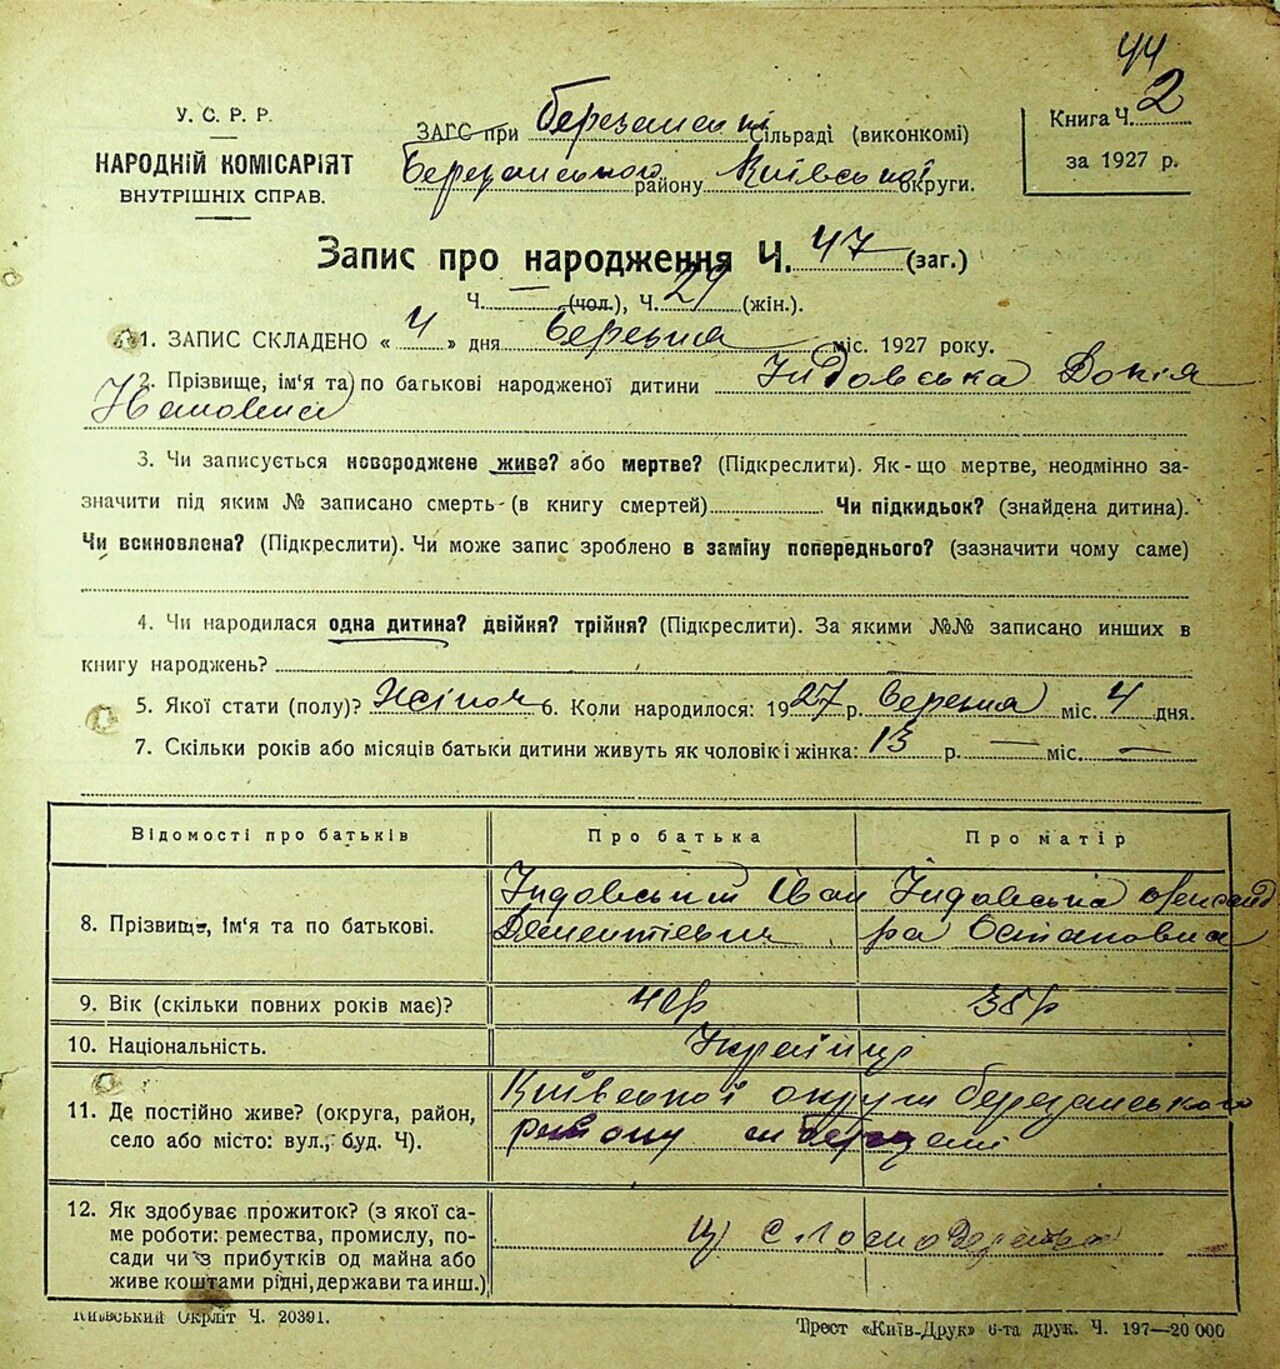 44
У. С. Р. Р.
НАРОДНІЙ КОМІСАРІЯТ
ВНУТРІШНІХ СПРАВ.
ЗАГС при березанскі Сільраді (виконкомі)
Березанського району Київської округи.
Книга Ч. 2
за 1927 р.
Запис про народження Ч. 47 (заг.)
Ч. — (чол.), Ч. 29 (жін.).
1. ЗАПИС СКЛАДЕНО « 4 » дня березня міс. 1927 року.
2. Прізвище, ім'я та по батькові народженої дитини Індовська Докія
Івановна
3. Чи записується новороджене живе? або мертве? (Підкреслити). Як-що мертве, неодмінно за-
значити під яким № записано смерть (в книгу смертей) Чи підкидьок? (знайдена дитина).
Чи всиновлена? (Підкреслити). Чи може запис зроблено в заміну попереднього? (зазначити чому саме)
4. Чи народилася одна дитина? двійня? трійня? (Підкреслити). За якими №№ записано инших в
книгу народжень?
5. Якої стати (полу)? Жіноч 6. Коли народилося: 1927 р. березня міс. 4 дня.
7. Скільки років або місяців батьки дитини живуть як чоловік і жінка: 13 р. — міс. —
Відомості про батьків Про батька Про матір
8. Прізвище, ім'я та по батькові. Індовський Іван Дементієвич Індовська Олександра Остаповна
9. Вік (скільки повних років має)? 35р
10. Національність. Українці
11. Де постійно живе? (округа, район, Київської округи березанського
село або місто: вул., буд. Ч). району м березані
12. Як здобуває прожиток? (з якої са-
ме роботи: ремества, промислу, по-
сади чи з прибутків од майна або
живе коштами рідні, держави та инш.)
Київський Окрліт Ч. 20391.
Трест «Київ-Друк» 6-та друк. Ч. 197—20 000